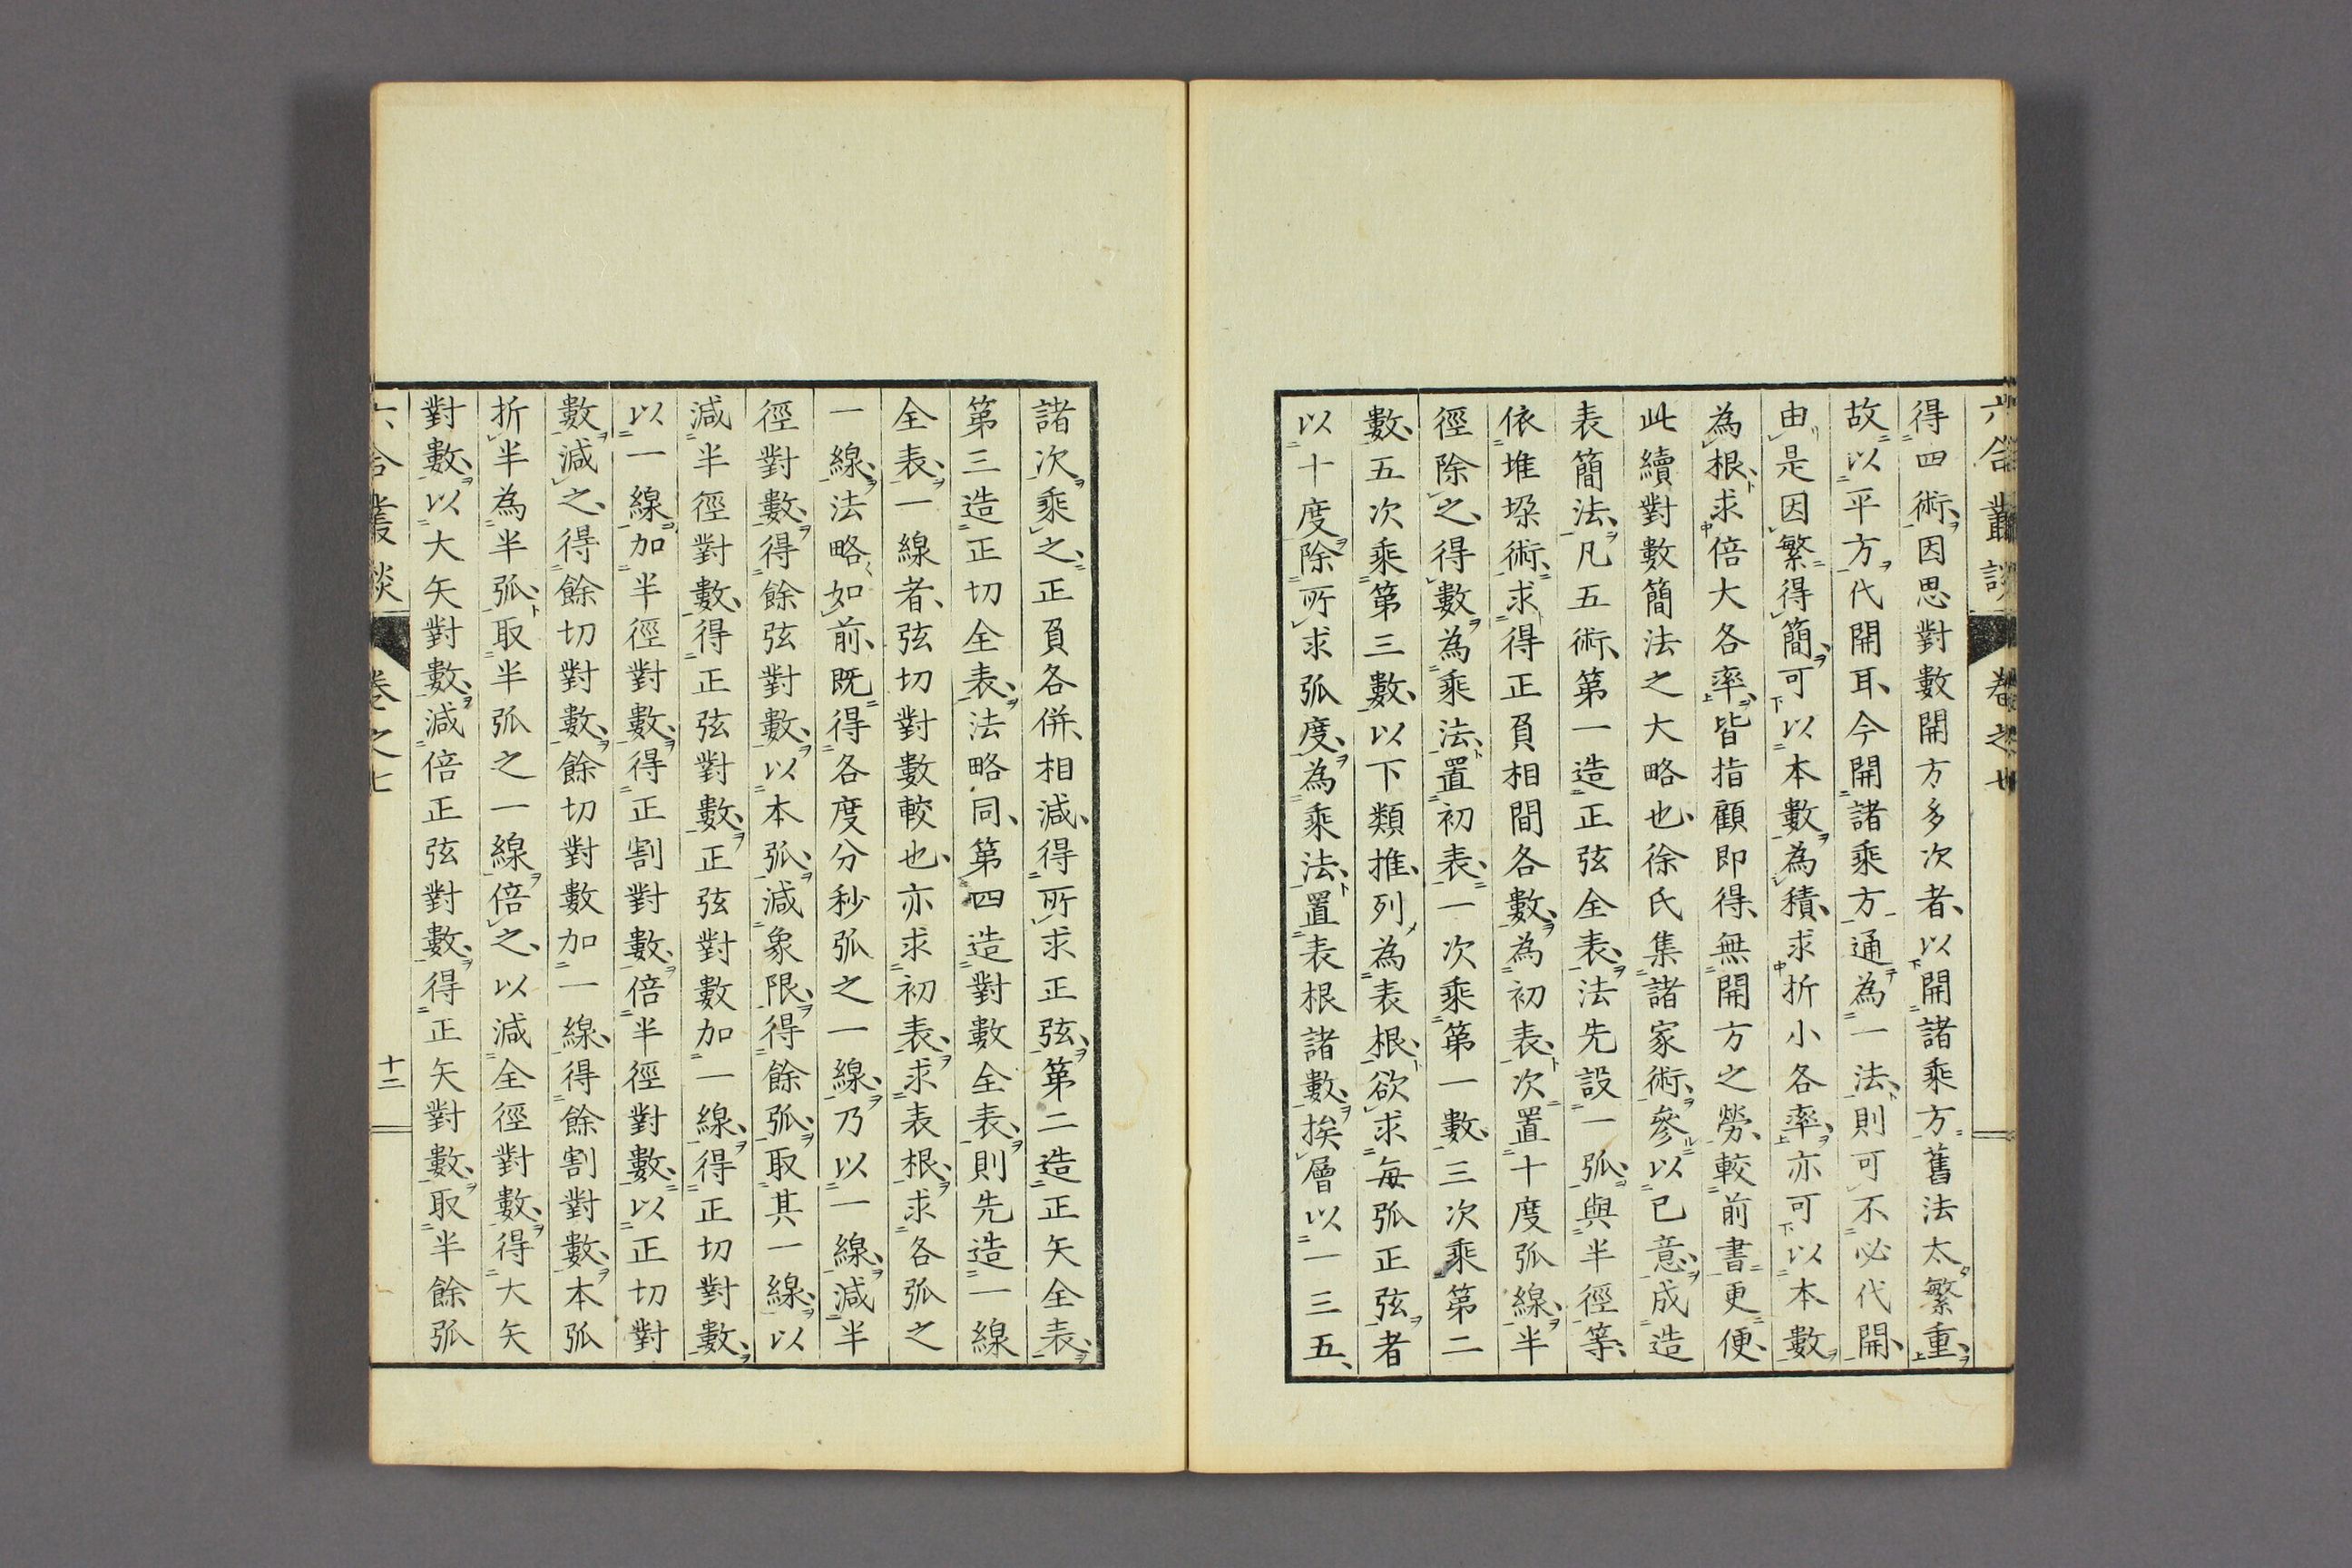 六合叢談 卷之七
得四術、因思對數開方多次者、以開諸乘方、舊法太繁重、
故以平方代開耳、今開諸乘方、通為一法、則可不必代開、
由是因繁得簡、可以本數為積、求折小各率、亦可以本數
為根、求倍大各率、皆指顧即得、無開方之勞、較前書更便、
此續對數簡法之大略也、徐氏集諸家術、參以已意、成造
表簡法、凡五術、第一造正弦全表、法先設一弧、與半徑等、
依堆垜術、求得正負相間各數、為初表、次置十度弧線、半
徑除之、得數為乘法、置初表、一次乘第一數、三次乘第二
數、五次乘第三數、以下類推、列為表根、欲求每弧正弦者
以十度除所求弧度、為乘法、置表根諸數、挨層以一三五、
諸次乘之、正負各併、相減、得所求正弦、第二造正矢全表、
第三造正切全表、法略同、第四造對數全表、則先造一線
全表、一線者、弦切對數較也、亦求初表、求表根、求各弧之
一線、法略如前、既得各度分秒弧之一線、乃以一線、減半
徑對數、得餘弦對數、以本弧、減象限、得餘弧、取其一線、以
減半徑對數、得正弦對數、正弦對數加一線、得正切對數、
以一線加半徑對數、得正割對數、倍半徑對數、以正切對
數減之、得餘切對數、餘切對數加一線、得餘割對數、本弧
折半為半弧、取半弧之一線倍之、以減全徑對數、得大矢
對數、以大矢對數、減倍正弦對數、得正矢對數、取半餘弧
六合叢談 卷之七 十二